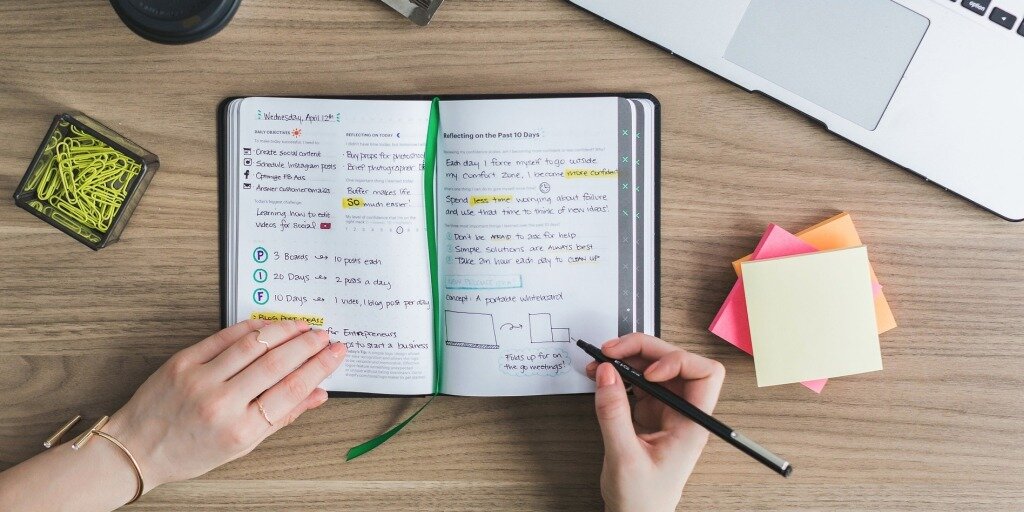 Wednesday, April 12th
DAILY OBJECTIVES
To make today successful, I need to:
Create social content
Schedule Instagram posts
Optimize FB Ads
Answer customer emails
Today's biggest challenge:
Learning how to edit
videos for Social
P 3 Boards → 10 posts each
I 20 Days → 2 posts a day
F 10 Days → 1 video, 1 blog post per day
BLOG POST IDEAS
for Entrepreneurs
to start a business
REFLECTING ON TODAY
Buy props for photoshoot
Brief photographer
One important thing I learned today:
Buffer makes life
SO much easier!
My level of confidence
Reflecting on the Past 10 Days
Each day I force myself to go outside
my comfort zone, I become more confident
Spend less time worrying about failure
and use that time to think of new ideas!
Don't be AFRAID to ask for help
Simple solutions are ALWAYS best
Take an hour each day to CLEAN UP
Concept: A portable whiteboard
Folds up for on
the go meetings!
option